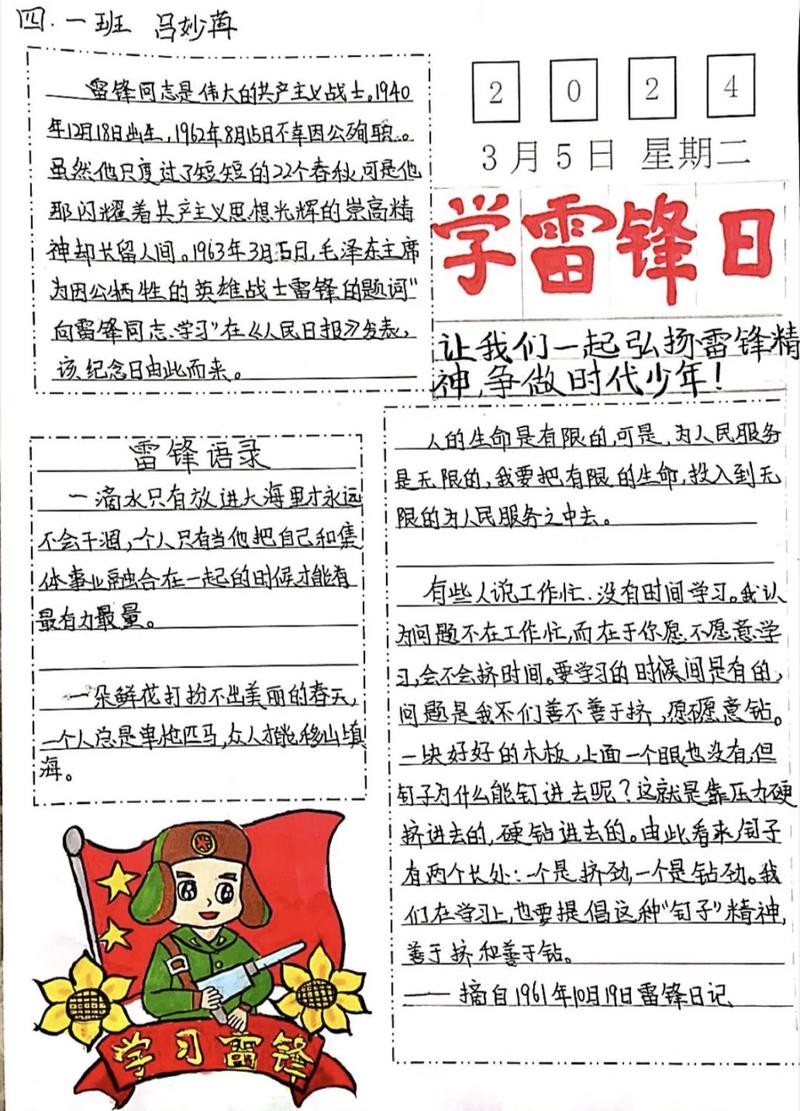 四.一班 吕妙苒
雷锋同志是伟大的共产主义战士。1940
年12月18日出生,1962年8月15日不幸因公殉职。
虽然他只度过了短短的22个春秋,可是他
那闪耀着共产主义思想光辉的崇高精
神却长留人间。1963年3月5日,毛泽东主席
为因公牺牲的英雄战士雷锋的题词“
向雷锋同志学习”在《人民日报》发表,
该纪念日由此而来。
2 0 2 4
3月5日 星期二
学雷锋日
让我们一起弘扬雷锋精
神,争做时代少年!
雷锋语录
一滴水只有放进大海里才永远
不会干涸,个人只有当他把自己和集
体事业融合在一起的时候才能有
最有力最量。
一朵鲜花打扮不出美丽的春天,
一个人总是单枪匹马,众人才能移山填
海。
人的生命是有限的,可是,为人民服务
是无限的,我要把有限的生命,投入到无
限的为人民服务之中去。
有些人说工作忙.没有时间学习。我认
为问题不在工作忙,而在于你愿不愿意学
习,会不会挤时间。要学习的时候间是有的,
问题是我们善不善于挤,愿不愿意钻。
一块好好的木板,上面一个眼也没有,但
钉子为什么能钉进去呢?这就是靠压力硬
挤进去的,硬钻进去的。由此看来,钉子
有两个长处:一个是挤劲,一个是钻劲。我
们在学习上,也要提倡这种“钉子”精神,
善于挤和善于钻。
——摘自1961年10月19日雷锋日记
学习雷锋